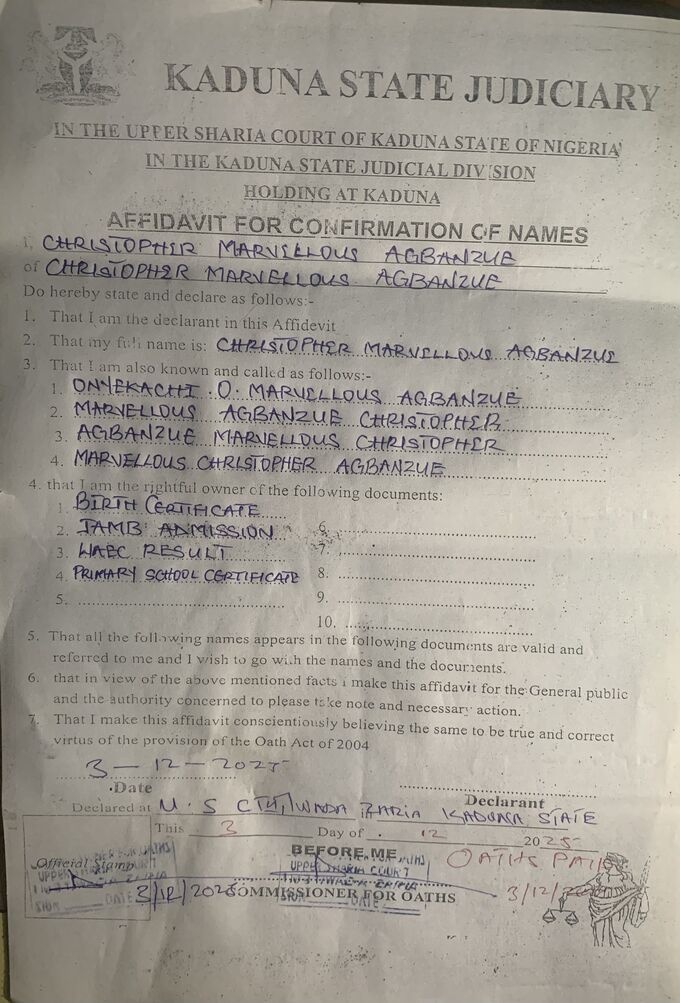 KADUNA STATE JUDICIARY
IN THE UPPER SHARIA COURT OF KADUNA STATE OF NIGERIA
IN THE KADUNA STATE JUDICIAL DIVISION
HOLDING AT KADUNA
AFFIDAVIT FOR CONFIRMATION OF NAMES
I, CHRISTOPHER MARVELLOUS AGBANZUE
of CHRISTOPHER MARVELLOUS AGBANZUE
Do hereby state and declare as follows:-
1. That I am the declarant in this Affidavit
2. That my full name is: CHRISTOPHER MARVELLOUS AGBANZUE
3. That I am also known and called as follows:-
1. ONYEKACHI .O. MARVELLOUS AGBANZUE
2. MARVELLOUS AGBANZUE CHRISTOPHER
3. AGBANZUE MARVELLOUS CHRISTOPHER
4. MARVELLOUS CHRISTOPHER AGBANZUE
4. that I am the rightful owner of the following documents:
1. BIRTH CERTIFICATE
2. JAMB ADMISSION 6.
3. WAEC RESULT 7.
4. PRIMARY SCHOOL CERTIFICATE 8.
5. 9.
10.
5. That all the following names appears in the following documents are valid and
referred to me and I wish to go with the names and the documents.
6. that in view of the above mentioned facts i make this affidavit for the General public
and the authority concerned to please take note and necessary action.
7. That I make this affidavit conscientiously believing the same to be true and correct
virtus of the provision of the Oath Act of 2004
3 - 12 - 2025
Date
Declarant
Declared at U. S CTH, ZARIA KADUNA STATE
This 3 Day of 12 2025
BEFORE ME
OATHS PAID
Official Stamp
UPPER SHARIA COURT
3/12/2025 COMMISSIONER FOR OATHS 3/12/
SIGN DATE